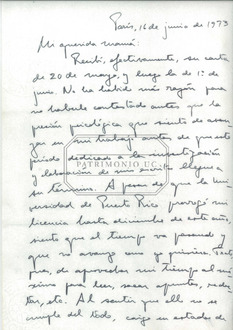 París, 16 de junio de 1973
Mi querida mamá:
Recibí, efectivamente, su carta
de 20 de mayo, y luego la de 1º de
junio. No ha habido más razón para
no haberle contestado antes que la
presión psicológica que siento de avan-
zar en mi trabajo antes de que este
período dedicado a la investigación
y elaboración de mi llegue a
su término. A pesar de que la Uni-
versidad de Puerto Rico prorrogó mi
licencia hasta diciembre de este año,
siento que el tiempo va pasando y
que no avanzo como yo quisiera. Trato,
pues, de aprovechar mi tiempo al má-
ximo para leer, sacar apuntes, redac-
tar, etc. Al sentir que ello no se
cumple del todo, caigo en estados de
PATRIMONIO UC